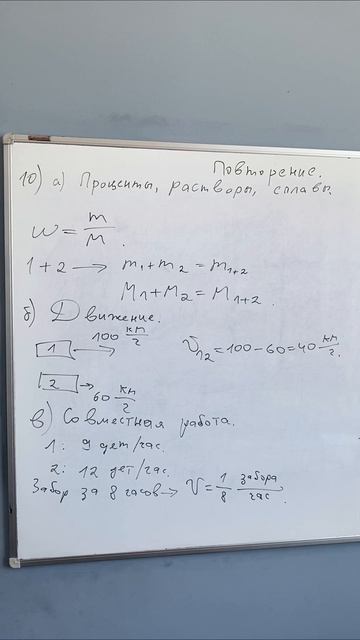 Повторение.
10) а) Проценты, растворы, сплавы.
w = m/M.
1 + 2 → m₁ + m₂ = m₁₊₂
M₁ + M₂ = M₁₊₂.
б) Движение.
1 → 100 км/ч
V₁₂ = 100 - 60 = 40 км/ч.
2 → 60 км/ч
в) Совместная работа.
1: 9 дет/час.
2: 12 дет/час.
Забор за 8 часов → V = 1/8 забора/час.